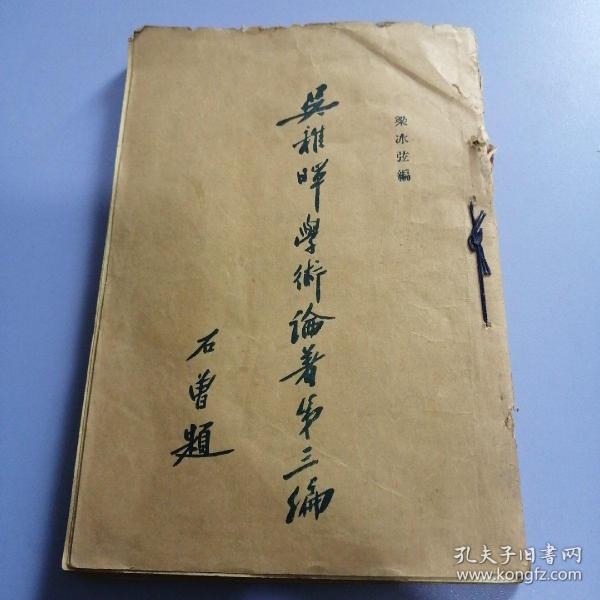 梁冰弦編
吳稚暉學術論著第三編
石曾題
孔夫子旧书网
www.kongfz.com